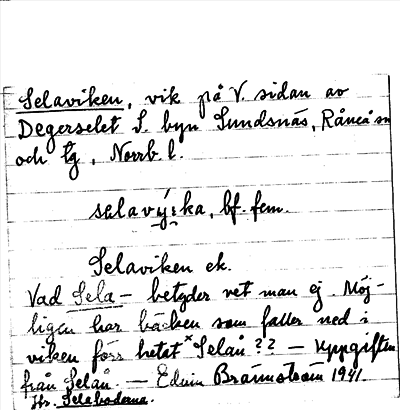 Selaviken, vik på V. sidan av
Degerselet S. byn Sundsnäs, Råneå sn
och tg, Norrb. l.
selavy̨ka, bf. fem.
Selaviken ek.
Vad Sela- betyder vet man ej. Möj-
ligen har bäcken som faller ned i
viken förr hetat *Selån?? — Uppgiften
från Selån. — Edvin Brännström 1941.
Jfr. Selaboderna.